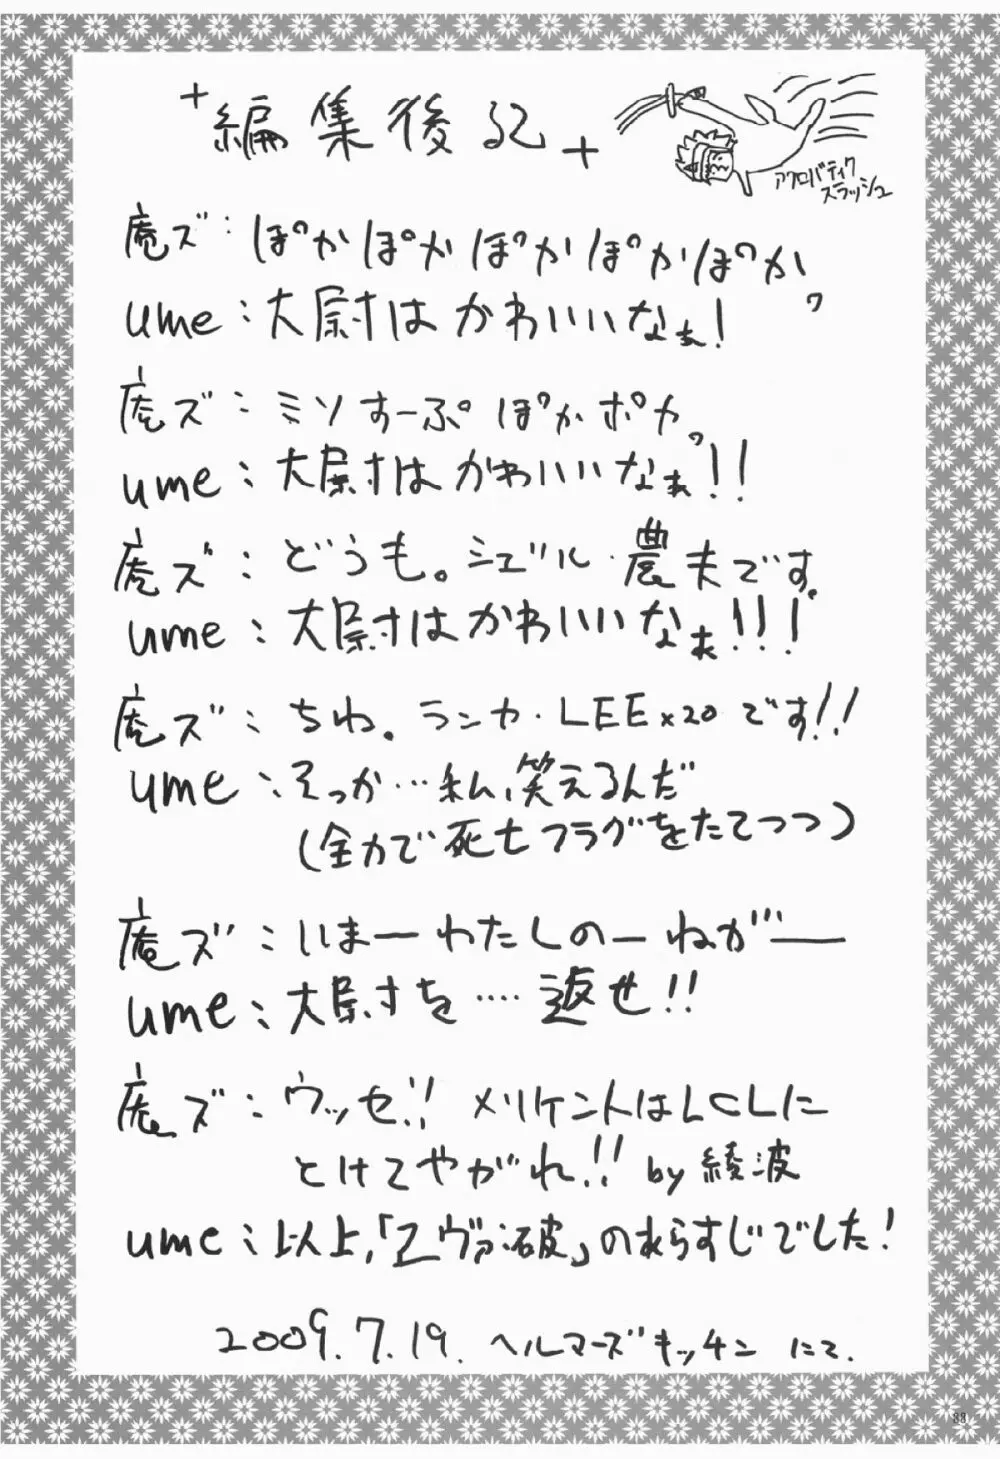 +編集後記+
アクロバティック
スラッシュ
庵ズ:ぽかぽかぽかぽかぽか。
ume:大尉はかわいいなぁ!
庵ズ:ミソすーぷぽかポカ。
ume:大尉はかわいいなぁ!!
庵ズ:どうも。シェゾル・農夫です。
ume:大尉はかわいいなぁ!!!
庵ズ:ちわ。ランカ・LEE×20です!!
ume:そっか…私、笑えるんだ
(全力で死亡フラグをたてつつ)
庵ズ:いまーわたしのーねがーー
ume:大尉を‥‥返せ!!
庵ズ:ウッセ!! メリケントはLCLに
とけてやがれ!! by 綾波
ume:以上、「ヱヴァ:破」のあらすじでした!
2009.7.19. ヘルマーズキッチン にて.
88